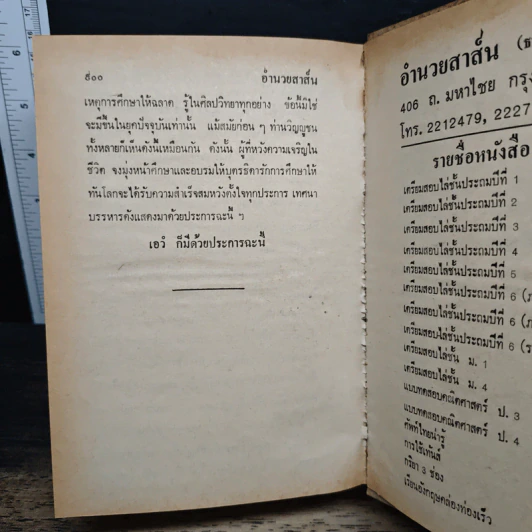 ๕๐๐ อำนวยสาส์น
เหตุการศึกษาให้ฉลาด รู้ในศิลปวิทยาทุกอย่าง ข้อนี้มิใช่
จะมีขึ้นในยุคปัจจุบันเท่านั้น แม้สมัยก่อน ๆ ท่านวิญญูชน
ทั้งหลายก็เห็นดังนี้เหมือนกัน ดังนั้น ผู้ที่หวังความเจริญใน
ชีวิต จงมุ่งหน้าศึกษาและอบรมให้บุตรธิดารักการศึกษาให้
ทันโลกจะได้รับความสำเร็จสมหวังดั่งใจทุกประการ เทศนา
บรรหารดังแสดงมาด้วยประการฉะนี้ ฯ
เอวํ ก็มีด้วยประการฉะนี้
อำนวยสาส์น (ธ
406 ถ. มหาไชย กรุง
โทร. 2212479, 2227
รายชื่อหนังสือ
เตรียมสอบไล่ชั้นประถมปีที่ 1
เตรียมสอบไล่ชั้นประถมปีที่ 2
เตรียมสอบไล่ชั้นประถมปีที่ 3
เตรียมสอบไล่ชั้นประถมปีที่ 4
เตรียมสอบไล่ชั้นประถมปีที่ 5
เตรียมสอบไล่ชั้นประถมปีที่ 6 (ภ
เตรียมสอบไล่ชั้นประถมปีที่ 6 (ภ
เตรียมสอบไล่ชั้นประถมปีที่ 6 (ร
เตรียมสอบไล่ชั้น ม. 1
เตรียมสอบไล่ชั้น ม. 4
แบบทดสอบคณิตศาสตร์ ป. 3
แบบทดสอบคณิตศาสตร์ ป. 4
ศัพท์ไทยน่ารู้
การใช้เท้นส์
กริยา 3 ช่อง
เรียนอังกฤษคล่องท่องเร็ว